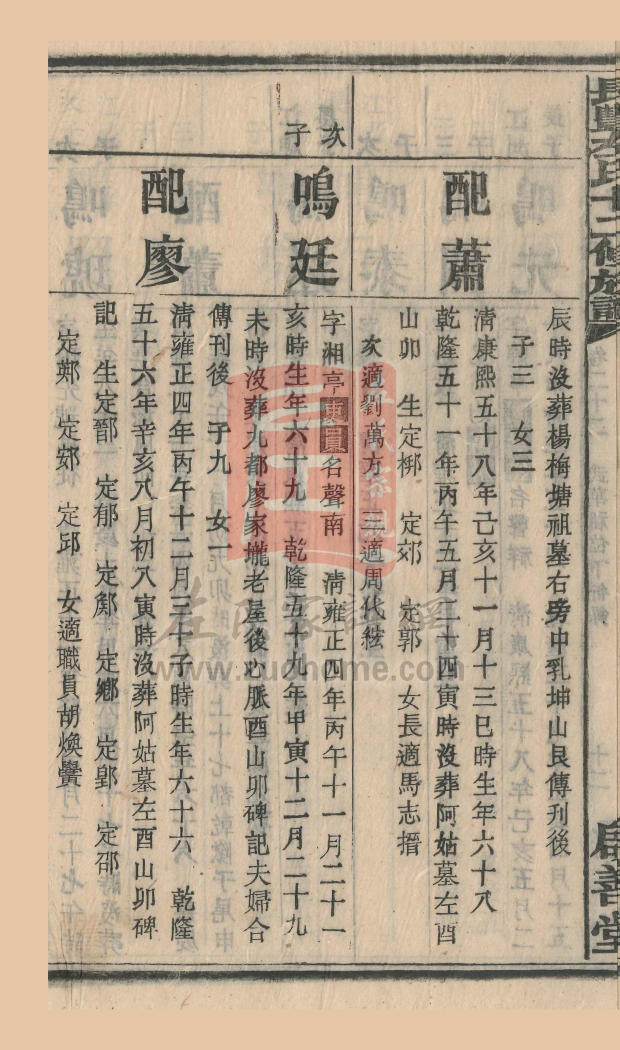 辰時沒葬楊梅塘祖墓右旁中乳坤山艮傳刊後
子三 女三
配蕭
清康熙五十八年己亥十一月十三巳時生年六十八
乾隆五十一年丙午五月二十四寅時沒葬阿姑墓左酉
山卯 生定郴 定郊 定郭 女長適馬志搢
次適劉萬方 三適周代絃
次子
鳴廷
字湘亭 名聲南 清雍正四年丙午十一月二十一
亥時生年六十九 乾隆五十九年甲寅十二月二十九
未時沒葬九都廖家壠老屋後心脈酉山卯碑記夫婦合
傳刊後 子九 女一
配廖
清雍正四年丙午十二月三十子時生年六十六 乾隆
五十六年辛亥八月初八寅時沒葬阿姑墓左酉山卯碑
記 生定郚 定郁 定鄺 定鄉 定郢 定邵
定鄭 定郯 定邱 女適職員胡煥黌
www.zuchome.com